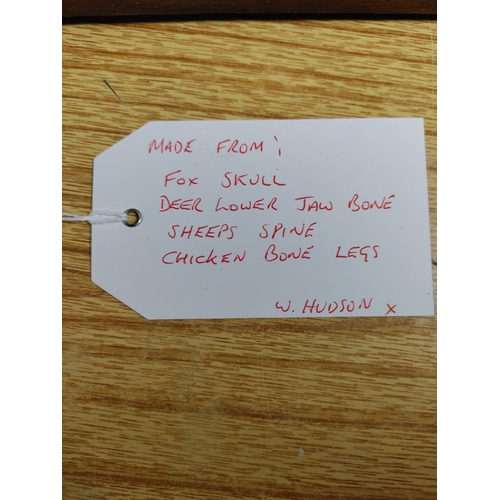 MADE FROM;
FOX SKULL
DEER LOWER JAW BONE
SHEEPS SPINE
CHICKEN BONE LEGS
W. HUDSON x